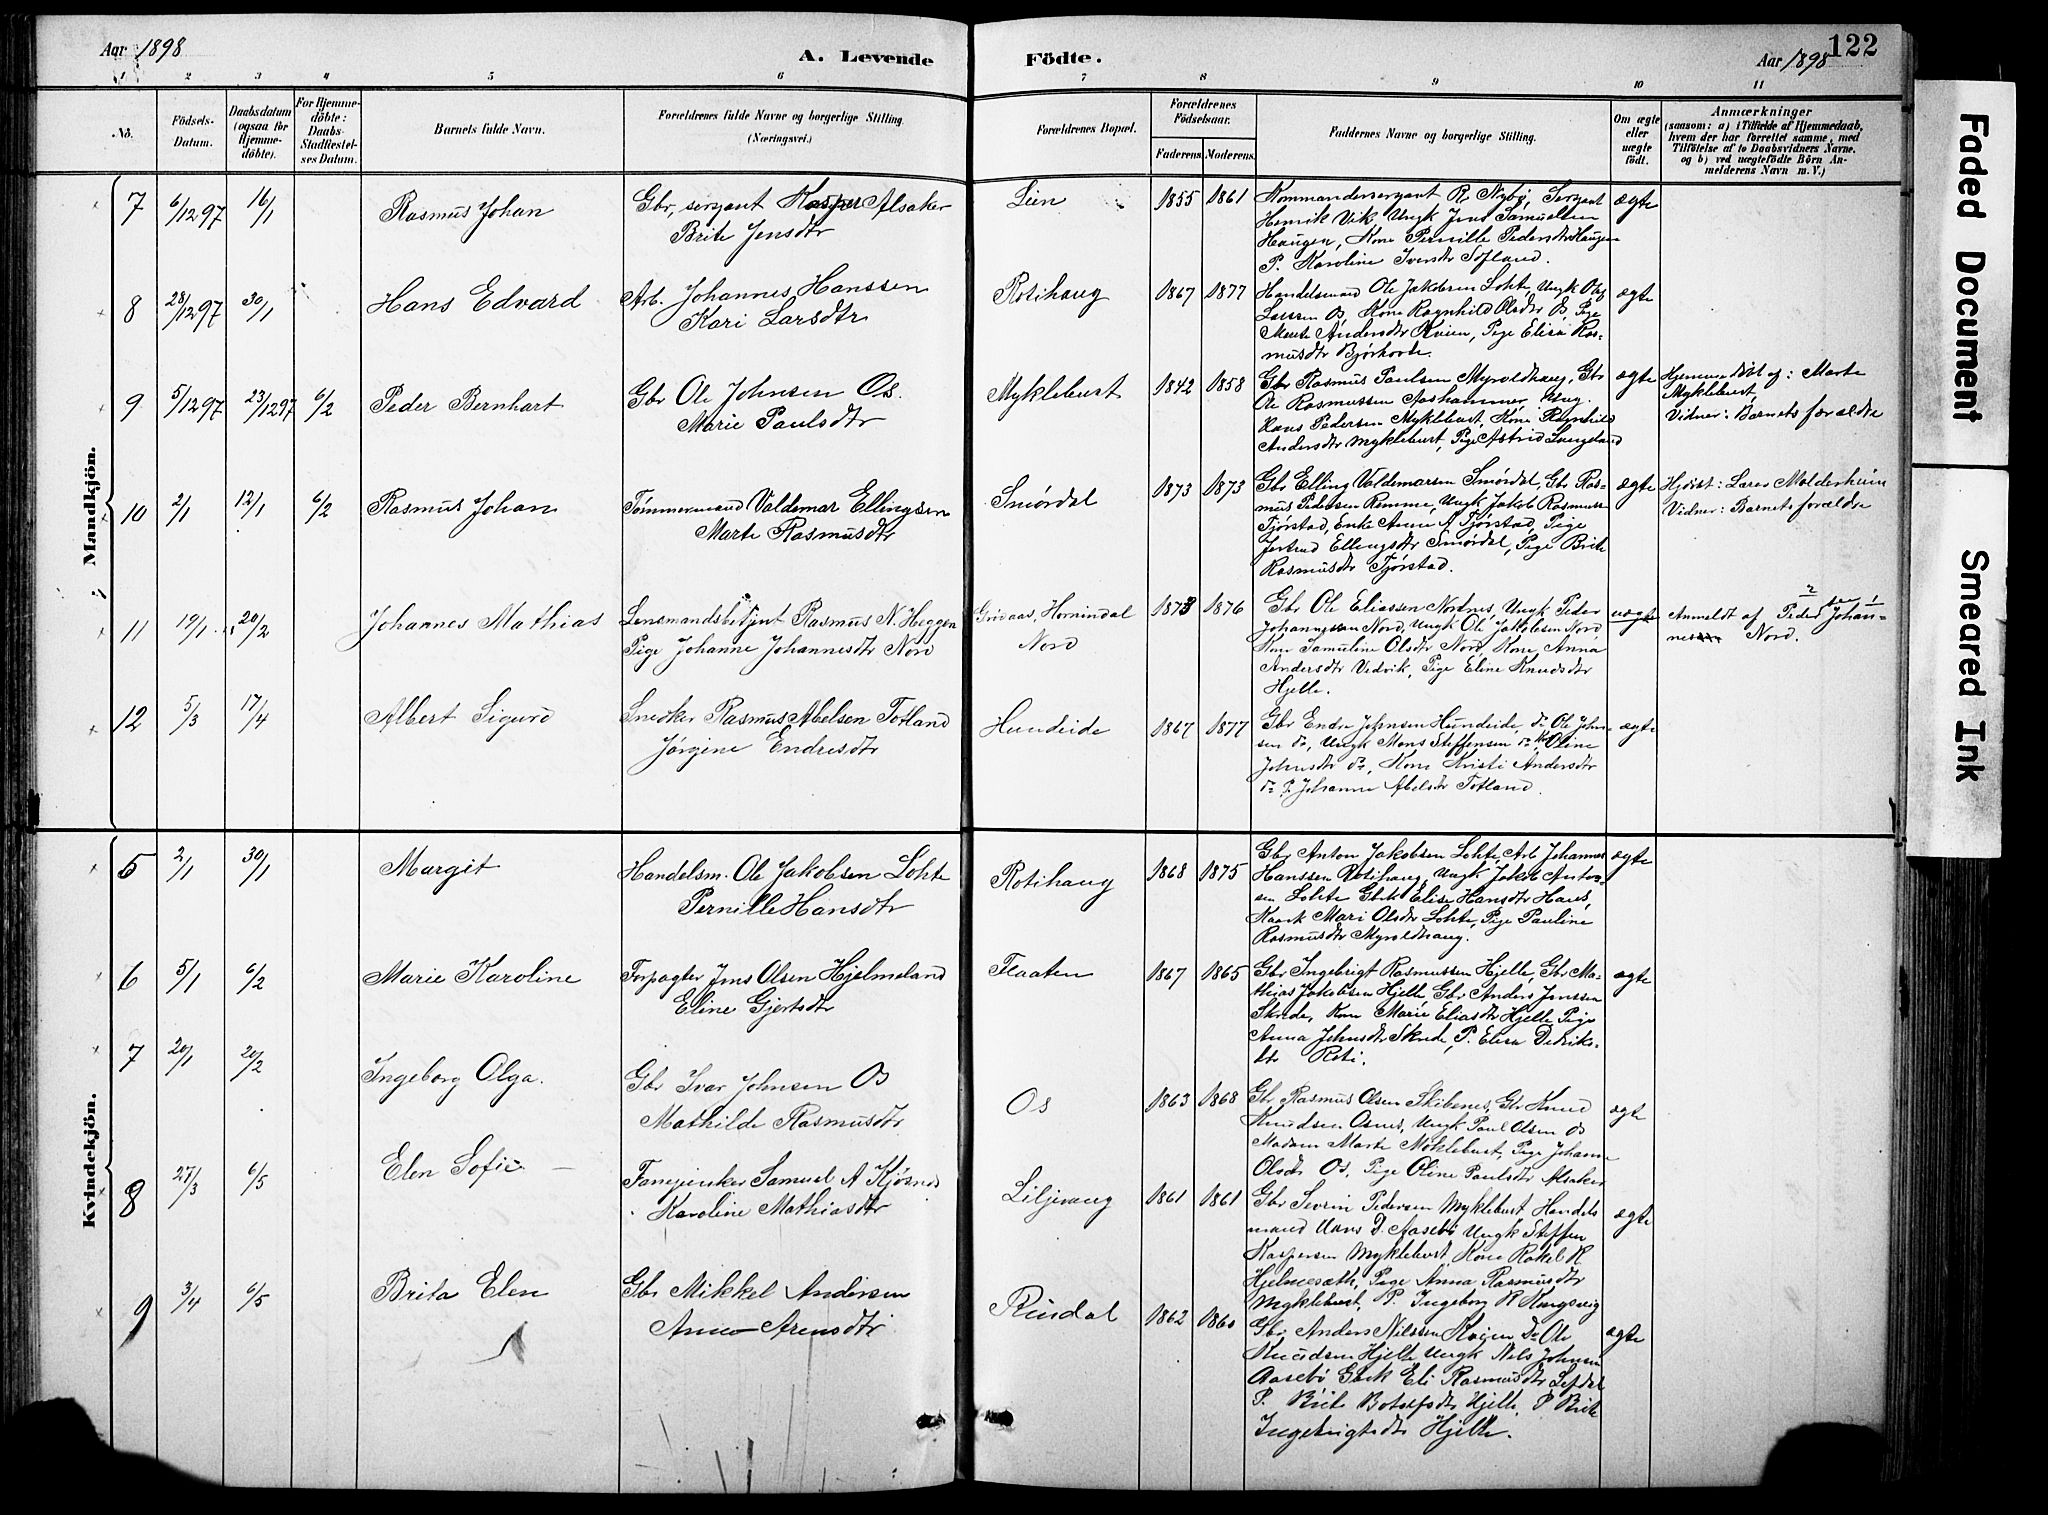 Aar 1898
A. Levende
Födte.
Aar 1898
122
1 2 3 4 5 6 7 8 9 10 11
No.
Födsels-
Datum.
Daabsdatum
(ogsaa for
Hjemme-
döbte).
For Hjemme-
döbte:
Daabs-
Stadfæstel-
ses Datum.
Barnets fulde Navn.
Forældrenes fulde Navne og borgerlige Stilling
(Næringsvei.)
Forældrenes Bopæl.
Forældrenes
Födselsaar.
Faderens.
Moderens.
Faddernes Navne og borgerlig Stilling.
Om ægte
eller
uægte
födt.
Anmærkninger
(saasom: a) i Tilfælde af Hjemmedaab,
hvem der har forrettet samme, med
Tilföielse af to Daabsvidners Navne.
og b) ved uægtefödte Börn An-
melderens Navn m. V.)
Mandkjön.
7 6/12 97 16/1 Rasmus Johan
Gbr, sergant Kasper Alsaker
Brite Jensdtr
Lien 1855 1861
Kommandersergant R. Nybø, Sergant
Henrik Vik Ungk Jens Samuelsen
Haugen, Kone Pernille Pedersdtr Haugen
P. Karoline Iversdtr Søfland.
ægte
8 28/12 97 30/1 Hans Edvard
Arb. Johannes Hanssen
Kari Larsdtr
Rotihaug 1867 1877
Handelsmand Ole Jakobsen Lohte, Ungk Ole
Larssen Os, Kone Ragnhild Olsdtr Os, Pige
Marte Andersdtr Kvien, Pige Elisa Ras-
musdtr Bjørhovde.
ægte
9 5/12 97 23/12 97 6/2 Peder Bernhart
Gbr Ole Johnsen Os.
Marie Paulsdtr
Myklebust 1842 1858
Gbr Rasmus Paulsen Myroldhaug, Gbr
Ole Rasmussen Aashammer Ung.
Hans Pedersen Myklebust, Kone Ragnhild
Andersdtr Myklebust, Pige Astrid Langeland
ægte
Hjemmedøbt af: Marte
Myklebust,
Vidner: Barnets forældre
10 2/1 12/1 6/2 Rasmus Johan
Tømmermand Valdemar Ellingsen
Marte Rasmusdtr
Smørdal 1873 1873
Gbr Elling Valdemarsen Smørdal, Gbr Ras-
mus Pedersen Remme, Ungk Jakob Rasmuss
Tjørstad, Enke Anne A Tjørstad, Pige
Jertrud Ellingsdtr Smørdal, Pige Brite
Rasmusdtr Tjørstad.
ægte
Hjdøbt: Lars Molderhuin
Vidner: Barnets forældre
11 19/1 20/2 Johannes Mathias
Lensmandsbetjent Rasmus N. Heggen
Pige Johanne Johannesdtr Nord
Grodaas, Hornindal
Nord
1873 1876
Gbr Ole Eliassen Nordnes, Ungk Peder
Johannessen Nord, Ungk Ole Jakobsen Nord
Kone Samuline Olsdtr Nord, Kone Anna
Andersdtr Vedvik, Pige Eline Knudsdtr
Hjelle.
uægte
Anmeldt af Peder Johan-
nes Nord.
12 5/3 17/4 Albert Sigurd
Snedker Rasmus Abelsen Totland
Jørgine Endresdtr
Hundeide 1867 1877
Gbr Endre Johnsen Hundeide, do Ole John-
sen do, Ungk Mons Steffensen do, Oline
Johnsdtr do, Kone Kristi Andersdtr
do P. Johanne Abelsdtr Totland.
ægte
Kvindekjön.
5 2/1 30/1 Margit
Handelsm. Ole Jakobsen Lohte
Pernille Hansdtr
Rotihaug 1868 1875
Gbr Anton Jakobsen Lohte, Arb Johannes
Hanssen Rotihaug, Ungk Jakob Anton-
sen Lohte Gbrk Elise Hansdtr Haus,
Kaark Mari Olsdtr Lohte, Pige Pauline
Rasmusdtr Myroldhaug.
ægte
6 5/1 6/2 Marie Karoline
Forpagter Jens Olsen Hjelmeland
Eline Gjertsdtr
Flaaten 1867 1865
Gbr Ingebrigt Rasmussen Hjelle, Gbr Ma-
thias Jakobsen Hjelle Gbr Anders Jenssen
Skrede, Kone Marie Eliasdtr Hjelle Pige
Anna Johnsdtr Skrede, P. Elisa Didriks-
dtr Roti.
ægte
7 20/1 20/2 Ingeborg Olga.
Gbr Ivar Johnsen Os
Mathilde Rasmusdtr
Os 1863 1868
Gbr Rasmus Olsen Skibenes, Gbr Knud
Knudsen Osnes, Ungk Paul Olsen Os
Madam Marte Myklebust, Pige Johanne
Olsdtr Os, Pige Oline Paulsdtr Alsaker
ægte
8 27/3 6/5 Elen Sofie
Fanejunker Samuel A Kjøsnes
Karoline Mathiasdtr
Liljevang 1861 1861
Gbr Severin Pedersen Myklebust Handels
mand Hans D. Aasebø Ungk Steffen
Kaspersen Myklebust, Kone Rakel R
Hjelmesæth, Pige Anna Rasmusdtr
Myklebust, P. Ingeborg R Kongsvig
ægte
9 3/4 6/5 Brita Elen
Gbr Mikkel Andersen
Anne Arensdtr
Rusdal 1862 1860
Gbr Anders Nilssen Kvien Do Ole
Knudsen Hjelle Ungk Nels Johnsen
Aasebø Gbrk Eli Rasmusdtr Lefdal
P. Brite Botolfsdtr Hjelle, P Brite
Ingebrigtsdtr Hjelle.
ægte
Faded Document
Smeared Ink